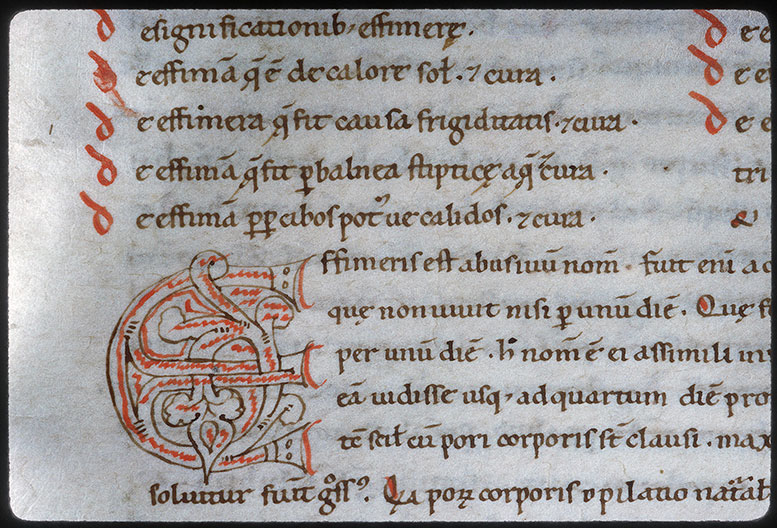 de significationib; effimerę.
de effimā q̄ ē de calore sol̄. ⁊ cura.
de effimera q̄ fit causa frigiditatis. ⁊ cura.
de effimā q̄ fit ꝑ balnea stipticę aq̄. ⁊ cura.
de effimā ꝓpꝑ cibos pot᾽ ue calidos. ⁊ cura.
Effimeris est abusiuū nom̄. Fuit eni
quę non uiuit nisi ꝑ unū diē. Quę
per unū diē. h̄ nom̄ ē ei assimila
eā uidisse usq; ad quartum diē
tē scil̄ cū pori corporis st̄ clausi.
soluitur fuit g̊ss᾽. Qa poꝝ corporis opilatio